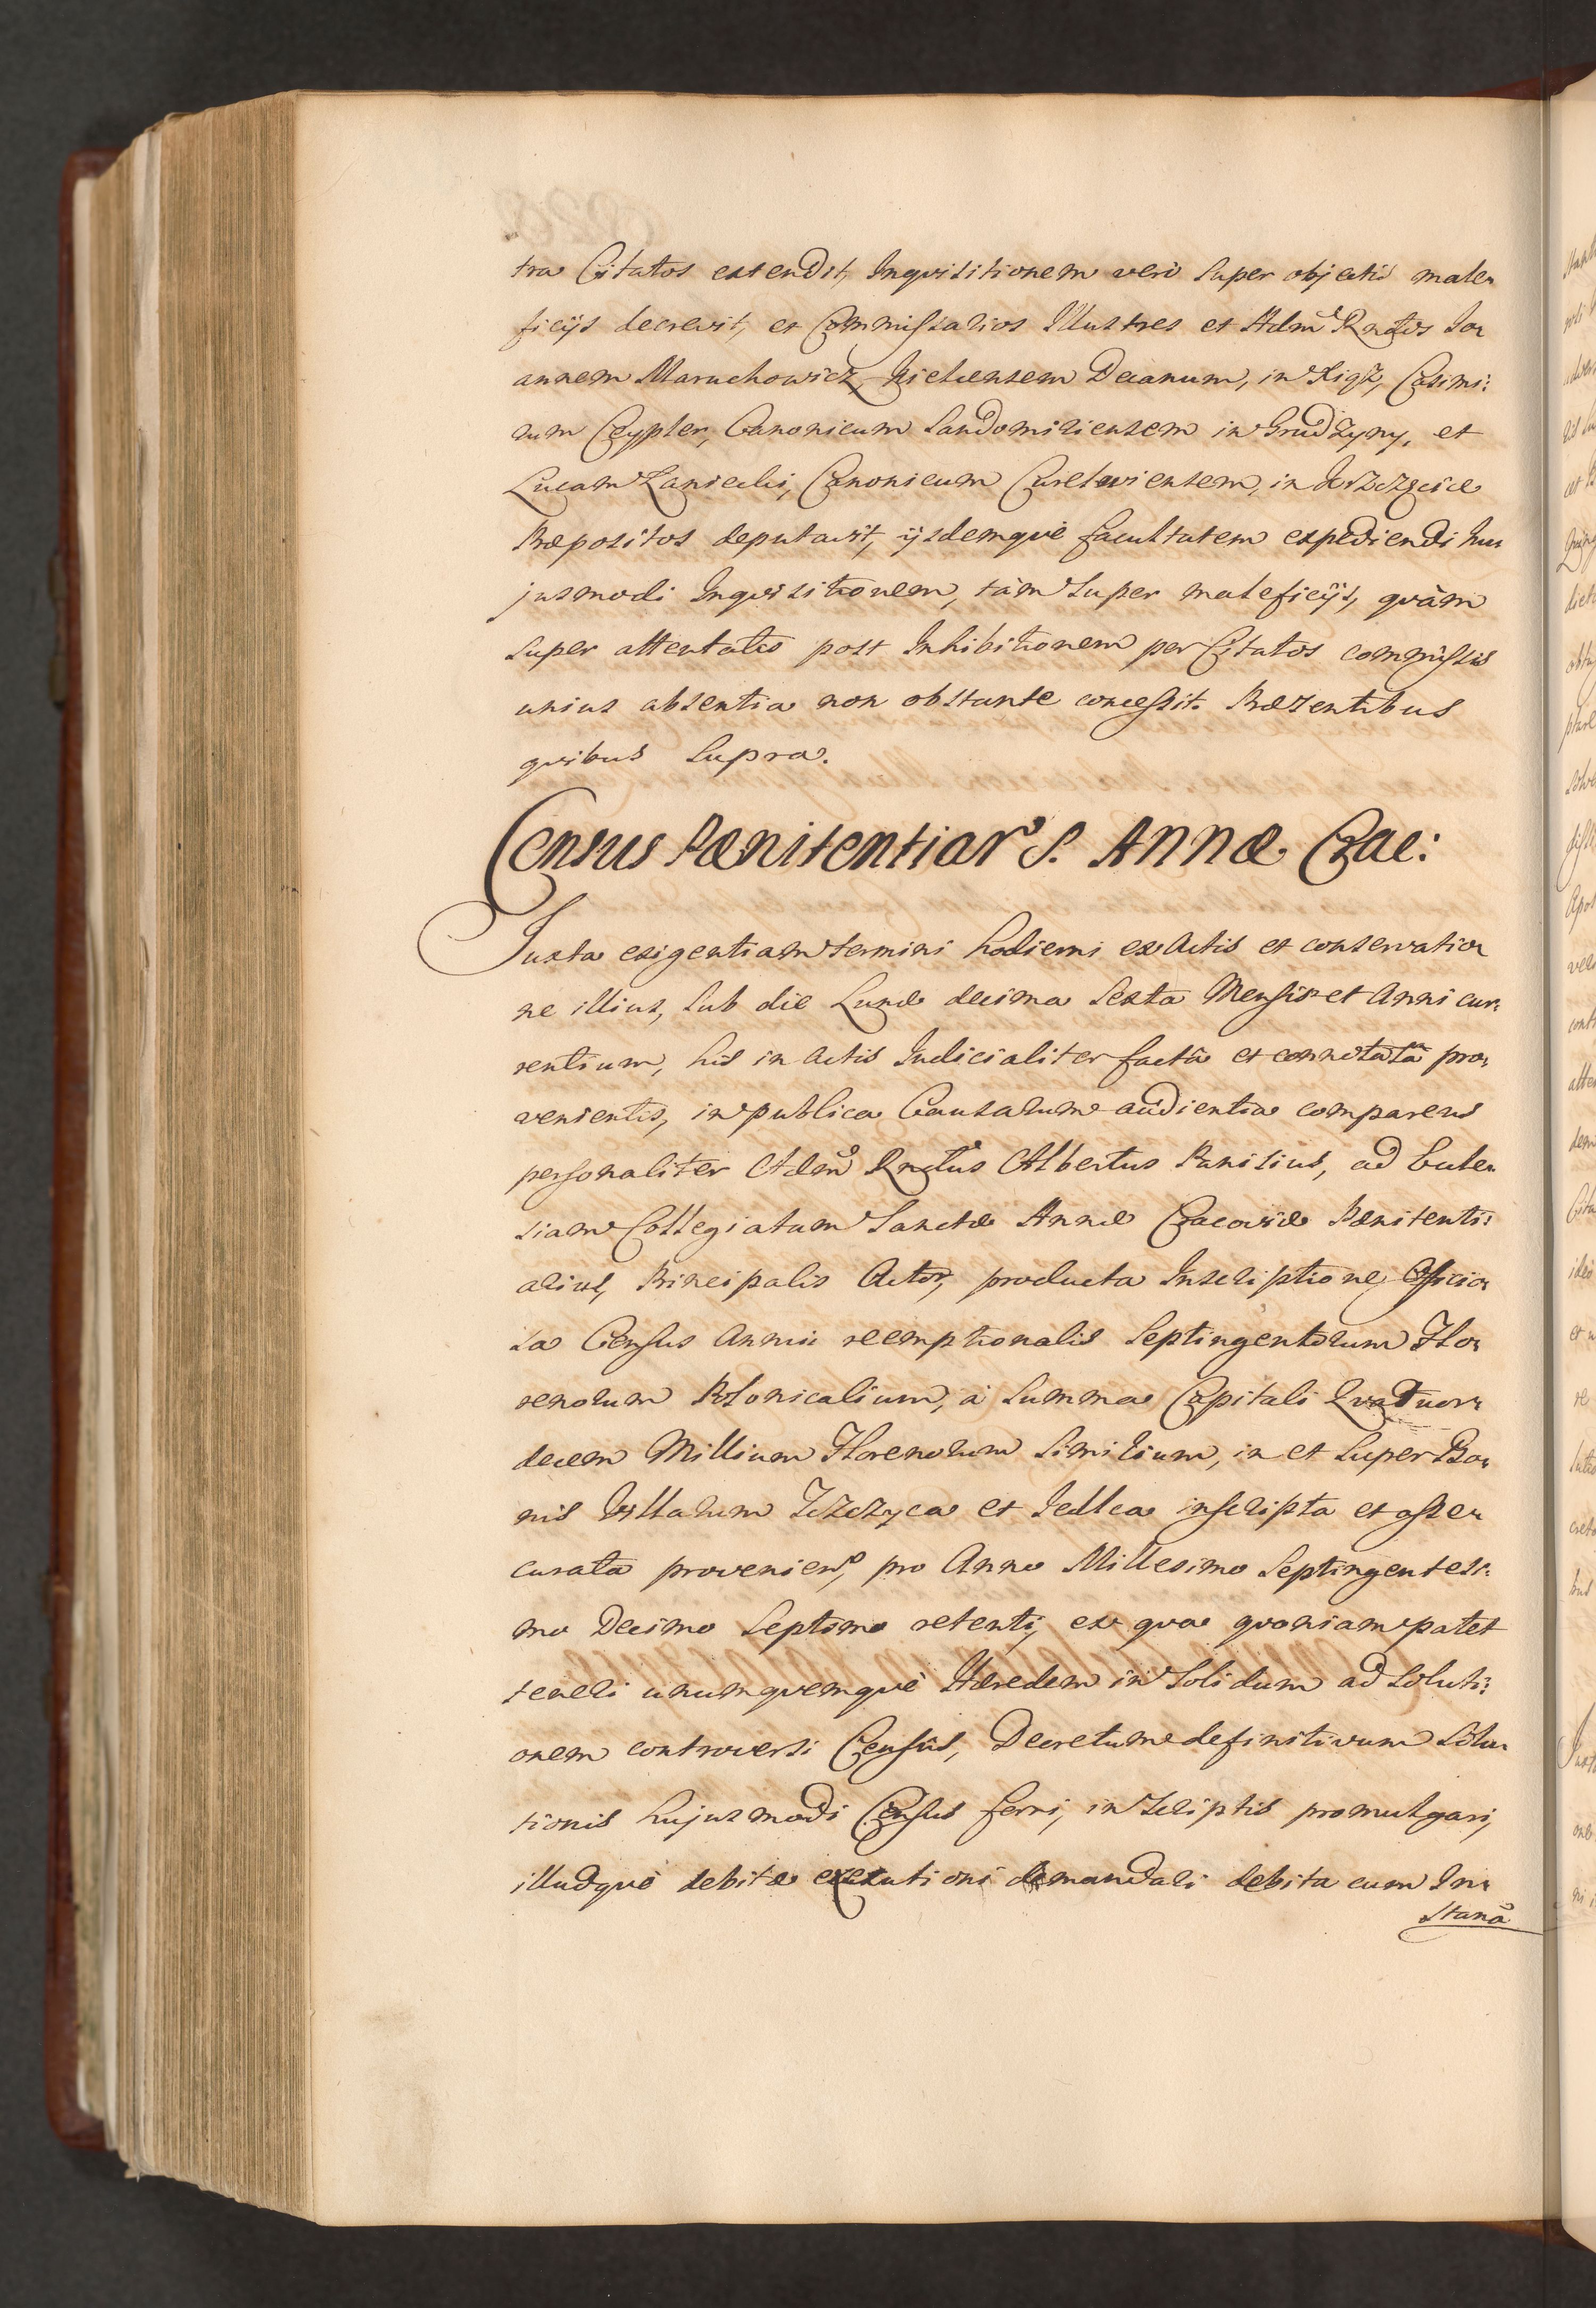 tra Citatos extendit, Inqvisitionem verò super objectis male-
ficijs decrevit, et Commissarios Illustres et Adm Rndos Jo-
annem Maruchowicz, Kielcensem Decanum, in Xiąż, Casimi:
rum Ceypler, Canonicum Sandomiriensem in Grudzyny, et
Lucam Laniecki, Canonicum Curelwiensem, in
Præpositos deputavit, ijsdemqvè facultatem expediendi hu-
jusmodi Inqvisitionem, tàm super maleficijs, qvàm
super attentatis post Inhibitionem per Citatos commissis
unius absentia non obstante concessit. Præsentibus
qvibus supra.
Census Pænitentiar S. Annæ Crac:
Juxta exigentiam termini hodierni ex Actis et conservatio-
ne illius, sub die Lunæ decima sexta Mensis et Anni cur-
rentium, his in Actis Judicialiter factâ et connotatâ pro-
venientis, in publica Causarum audientia comparens
personaliter Adm Rndus Albertus Panisius, ad Eccle-
siam Collegiatam Sanctæ Annæ Cracoviæ Pænitenti:
arius, Principalis Actor, producta Inscriptione Officio-
sa Census Annui reemptionalis Septingentorum Flo-
renorum Polonicalium, à Summa Capitali Qvatuor-
decem Millium Florenorum Similium, in et super Bo-
nis Villarum Jczczyca et Jedlca inscripta et asse-
curata provenien, pro Anno Millesimo Septingentesi-
mo Decimo Septimo retenti, ex qva qvoniam patet
teneri unumqvemqvè Hæredem in Solidum ad Soluti:
onem controversi Censûs, Decretum definitivum solu-
tionis hujusmodi Census ferri, in Scriptis promulgari,
illudqvè debitæ executioni demandari debita cum In-
stanâ